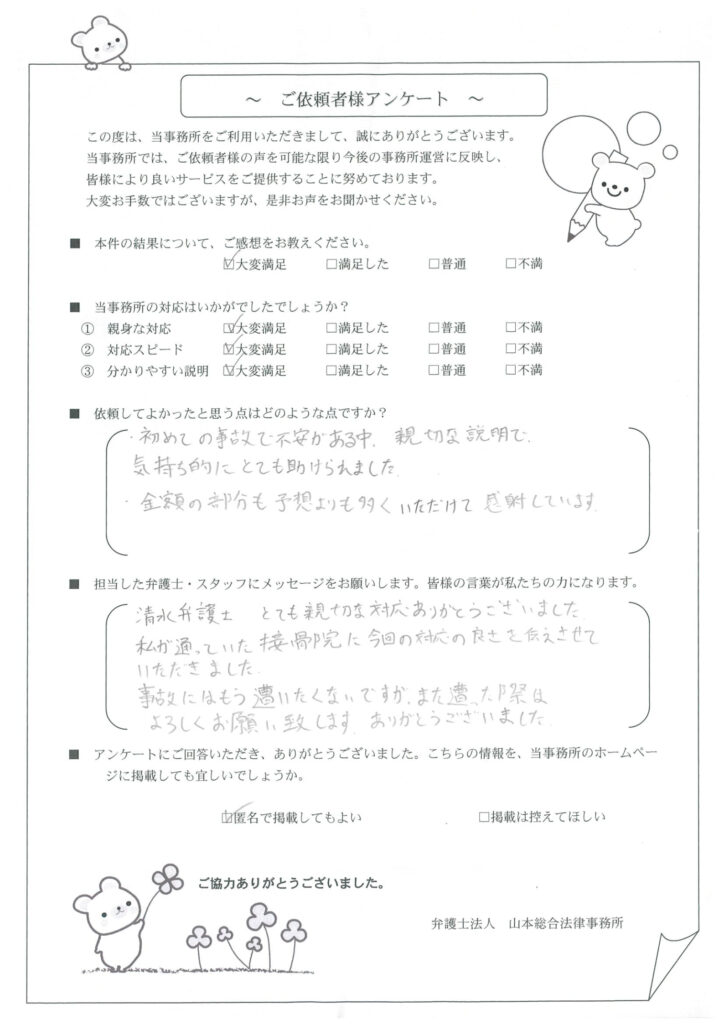 ～ ご依頼者様アンケート ～
この度は、当事務所をご利用いただきまして、誠にありがとうございます。
当事務所では、ご依頼者様の声を可能な限り今後の事務所運営に反映し、
皆様により良いサービスをご提供することに努めております。
大変お手数ではございますが、是非お声をお聞かせください。
■ 本件の結果について、ご感想をお教えください。
☑大変満足 □満足した □普通 □不満
■ 当事務所の対応はいかがでしたでしょうか？
① 親身な対応 ☑大変満足 □満足した □普通 □不満
② 対応スピード ☑大変満足 □満足した □普通 □不満
③ 分かりやすい説明 ☑大変満足 □満足した □普通 □不満
■ 依頼してよかったと思う点はどのような点ですか？
・初めての事故で不安がある中、親切な説明で、
気持ち的にとても助けられました。
・金額の部分も予想よりも多くいただけて感射しています。
■ 担当した弁護士・スタッフにメッセージをお願いします。皆様の言葉が私たちの力になります。
清水弁護士 とても親切な対応ありがとうございました
私が通っていた接骨院に今回の対応の良さを伝えさせて
いただきました。
事故にはもう遭いたくないですが、また遭った際は
よろしくお願い致します。ありがとうございました。
■ アンケートにご回答いただき、ありがとうございました。こちらの情報を、当事務所のホームペー
ジに掲載しても宜しいでしょうか。
☑匿名で掲載してもよい □掲載は控えてほしい
ご協力ありがとうございました。
弁護士法人 山本総合法律事務所